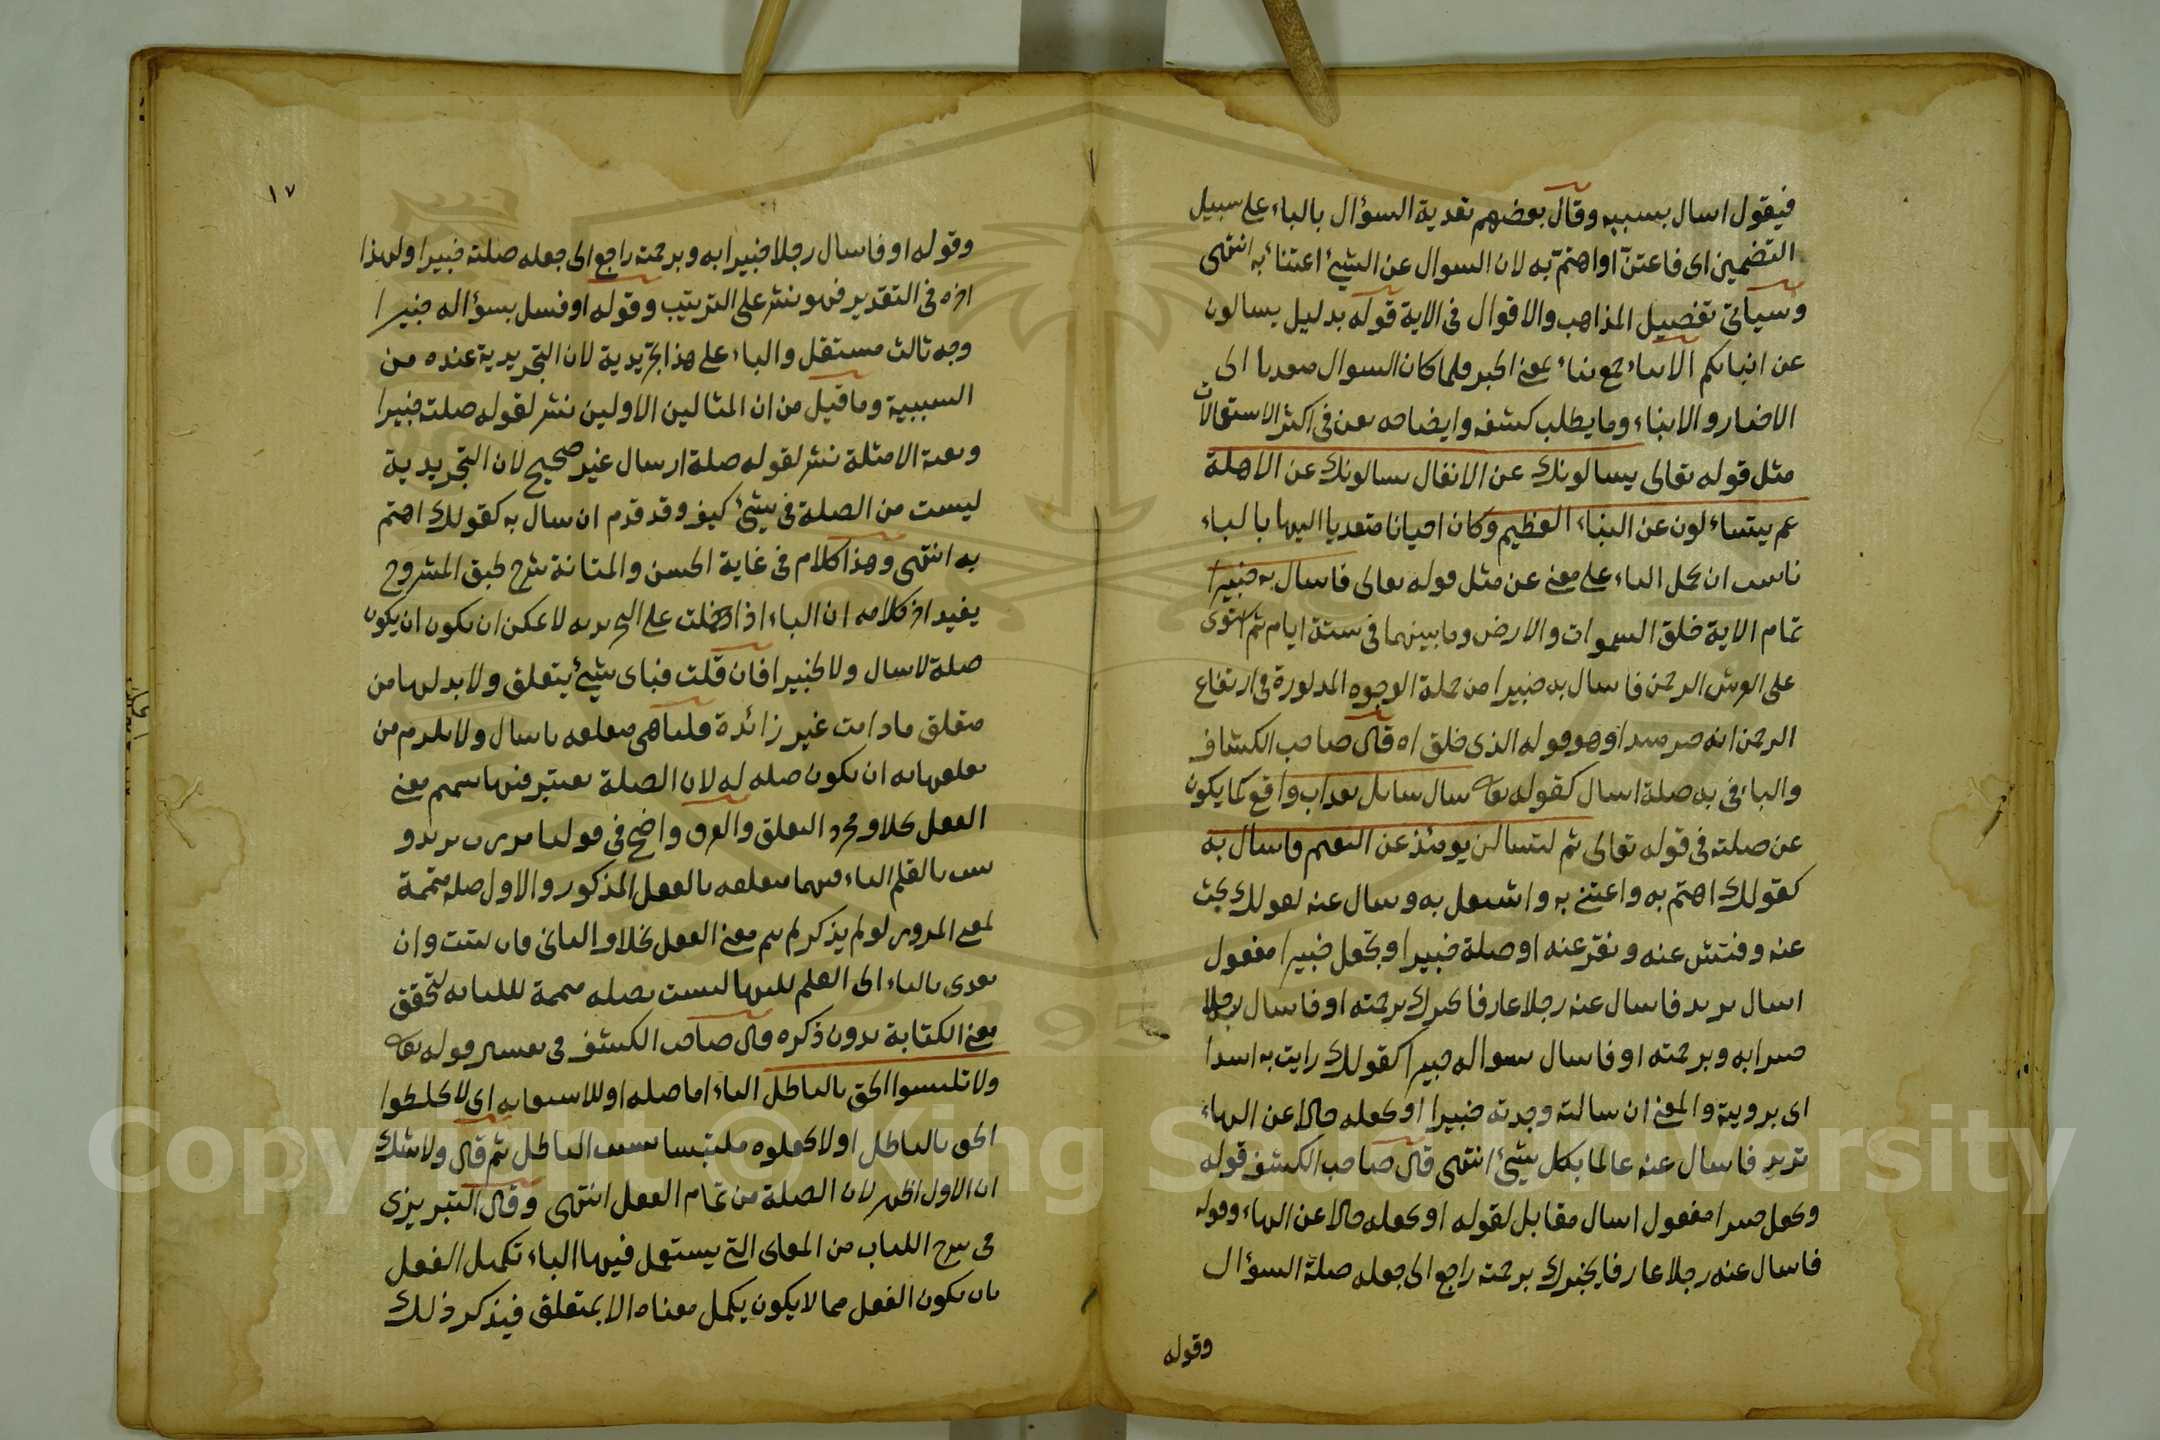 فيقول اسال بسببه وقال بعضهم تعدية السؤال بالباء على سبيل
التضمين اى فاعتنّ او اهتمّ به لان السوال عن الشئ اعتناء به انتهى
وسيأتى تفصيل المذاهب والاقوال فى الاية قوله بدليل يسالون
عن انبائكم الانباء جمع نباء بمعنى الخبر فلما كان السوال متعديا الى
الاخبار والانباء وما يطلب كشفه وايضاحه بعن فى اكثر الاستعمالات
مثل قوله تعالى يسالونك عن الانفال يسالونك عن الاهلة
عم يتساءلون عن النباء العظيم وكان احيانا متعديا اليها بالباء
ناسب ان يحمل الباء على معنى عن مثل قوله تعالى فاسال به خبيرا
تمام الاية خلق السموات والارض وما بينهما فى ستة ايام ثم استوى
على العرش الرحمن فاسال به خبيرا من جملة الوجوه المذكورة فى ارتفاع
الرحمن انه خبر مبتدا وهو قوله الذى خلق اه قال صاحب الكشاف
والباء فى به صلة اسال كقوله تعا سال سائل بعذاب واقع كما يكون
عن صلته فى قوله تعالى ثم لتسالن يومئذ عن النعيم فاسال به
كقولك اهتم به واعتنى به واشتغل به وسال عنه كقولك بحث
عنه وفتش عنه ونقر عنه او صلة خبيرا وتجعل خبيرا مفعول
اسال يريد فاسال عنه رجلا عارفا يخبرك برحمته او فاسال رجلا
خبيرا به وبرحمته او فاسال بسواله خبيرا كقولك رايت به اسدا
اى برويته والمعنى ان سالته وجدته خبيرا او تجعله حالا عن الهاء
تريد فاسال عنه عالما بكل شئ انتهى قال صاحب الكشف قوله
وتجعل خبيرا مفعول اسال مقابل لقوله او تجعله حالا عن الهاء وقوله
فاسال عنه رجلا عارفا يخبرك برحمته راجع الى جعله صلة السؤال
وقوله
١٧
وقوله او فاسال رجلا خبيرا به وبرحمته راجع الى جعله صلة خبيرا ولهذا
اخره فى التقدير فهو نشر على الترتيب وقوله او فسل بسؤاله خبيرا
وجه ثالث مستقل والباء على هذا تجريدية لان التجريدية عنده من
السببية وما قيل من ان المثالين الاولين نشر لقوله صلة خبيرا
وبقية الامثلة نشر لقوله صلة ارسال غير صحيح لان التجريدية
ليست من الصلة فى شئ كيف وقد قدم ان سال به كقولك اهتم
به انتهى وهذا كلام فى غاية الحسن والمتانة شرح طبق المشروح
يفيد اخر كلامه ان الباء اذا دخلت على التجريديه لا يمكن ان يكون ان يكون
صلة لاسال ولا لخبيرا فان قلت فباى شئ يتعلق ولا بد لها من
متعلق ما دامت غير زائدة قلنا هى متعلقه باسال ولا يلزم من
تعلقها به ان يكون صله له لان الصلة يعتبر فيها تتميم معنى
الفعل بخلاف مجرد التعلق والفرق واضح فى قولنا مررت بزيد و
كتبت بالقلم الباء فيهما متعلقه بالفعل المذكور والاول صله متممة
لمعنى المرور لو لم يذكر لم يتم معنى الفعل بخلاف الثانى فان كتبت وان
تعدى بالباء الى القلم لكنها ليست بصله متممة للكتابه لتحقق
معنى الكتابة بدون ذكره قال صاحب الكشف فى تفسير قوله تعا
ولا تلبسوا الحق بالباطل الباء اما صله او للاستعانه اى لا تخلطوا
الحق بالباطل او لا تجعلوه ملتبسا بسبب الباطل ثم قال ولا شك
ان الاول اظهر لان الصلة من تمام الفعل انتهى وقال التبريزى
فى شرح اللباب من المعانى التى يستعمل فيها الباء تكميل الفعل
بان يكون الفعل مما لا يكون يكمل معناه الا بمتعلق فيذكر ذلك
Copyright © King Saud University